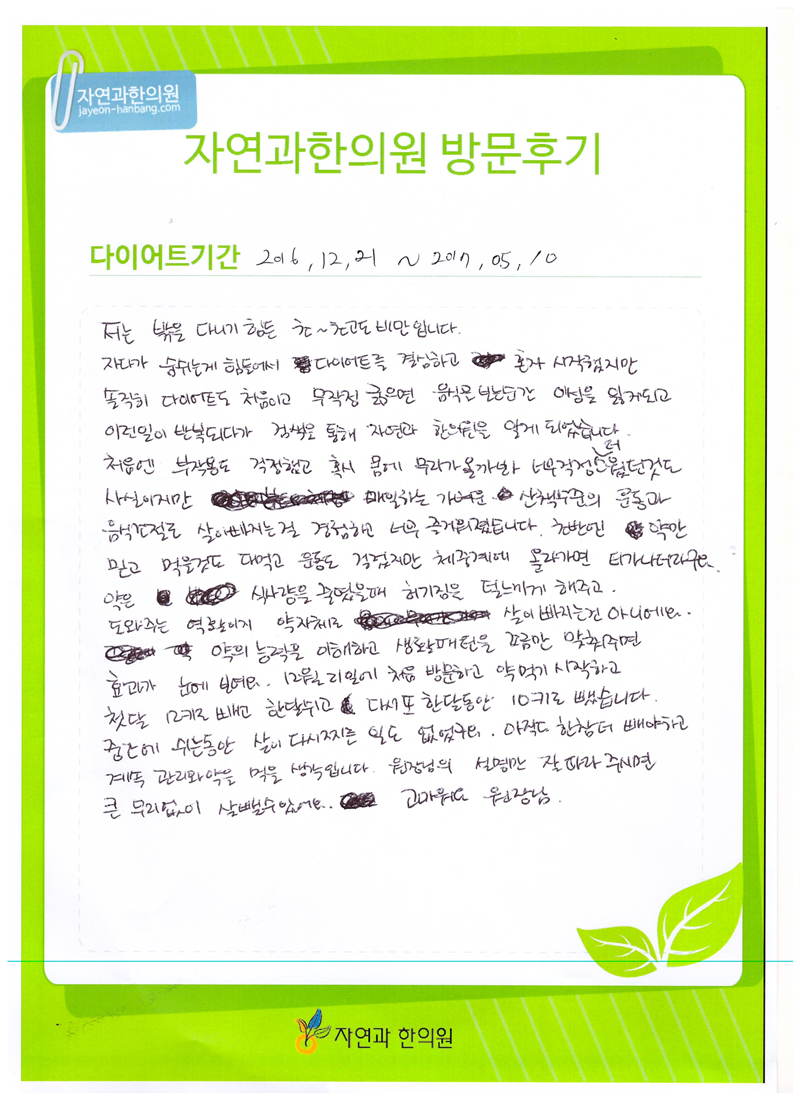 자연과한의원
jayeon-hanbang.com
자연과한의원 방문후기
다이어트기간 2016, 12, 21 ~ 2017, 05, 10
저는 밖을 다니기 힘든 초~초고도 비만입니다.
자다가 숨쉬는게 힘들어서 다이어트를 결심하고 혼자 시작했지만
솔직히 다이어트도 처음이고 무작정 굶으면 음식만 보는순간 이성을 잃게되고
이런일이 반복되다가 검색을 통해 자연과 한의원을 알게 되었습니다.
처음엔 부작용도 걱정했고 혹시 몸에 무리가 올까봐 너무걱정스러웠던것도
사실이지만 매일하는 가벼운 산책수준의 운동과
음식조절로 살이빠지는걸 경험하고 너무 즐거워졌습니다. 초반엔 약만
믿고 먹을것도 다먹고 운동도 걸렀지만 체중계에 올라가면 티가나더라구요.
약은 식사량을 줄였을때 허기짐을 덜느끼게 해주고.
도와주는 역할이지 약자체로 살이빠지는건 아니에요.
약의 능력을 이해하고 생활패턴을 조금만 맞춰주면
효과가 눈에 보여요. 12월21일에 처음 방문하고 약먹기 시작하고
첫달 12키로 빼고 한달쉬고 다시또 한달동안 10키로 뺐습니다.
중간에 쉬는동안 살이 다시찌는 일도 없었구요. 아직도 한참더 빼야하고
계속 관리와약을 먹을 생각입니다. 원장님의 설명만 잘따라 주시면
큰 무리없이 살뺄수있어요. 고마워요 원장님.
자연과 한의원